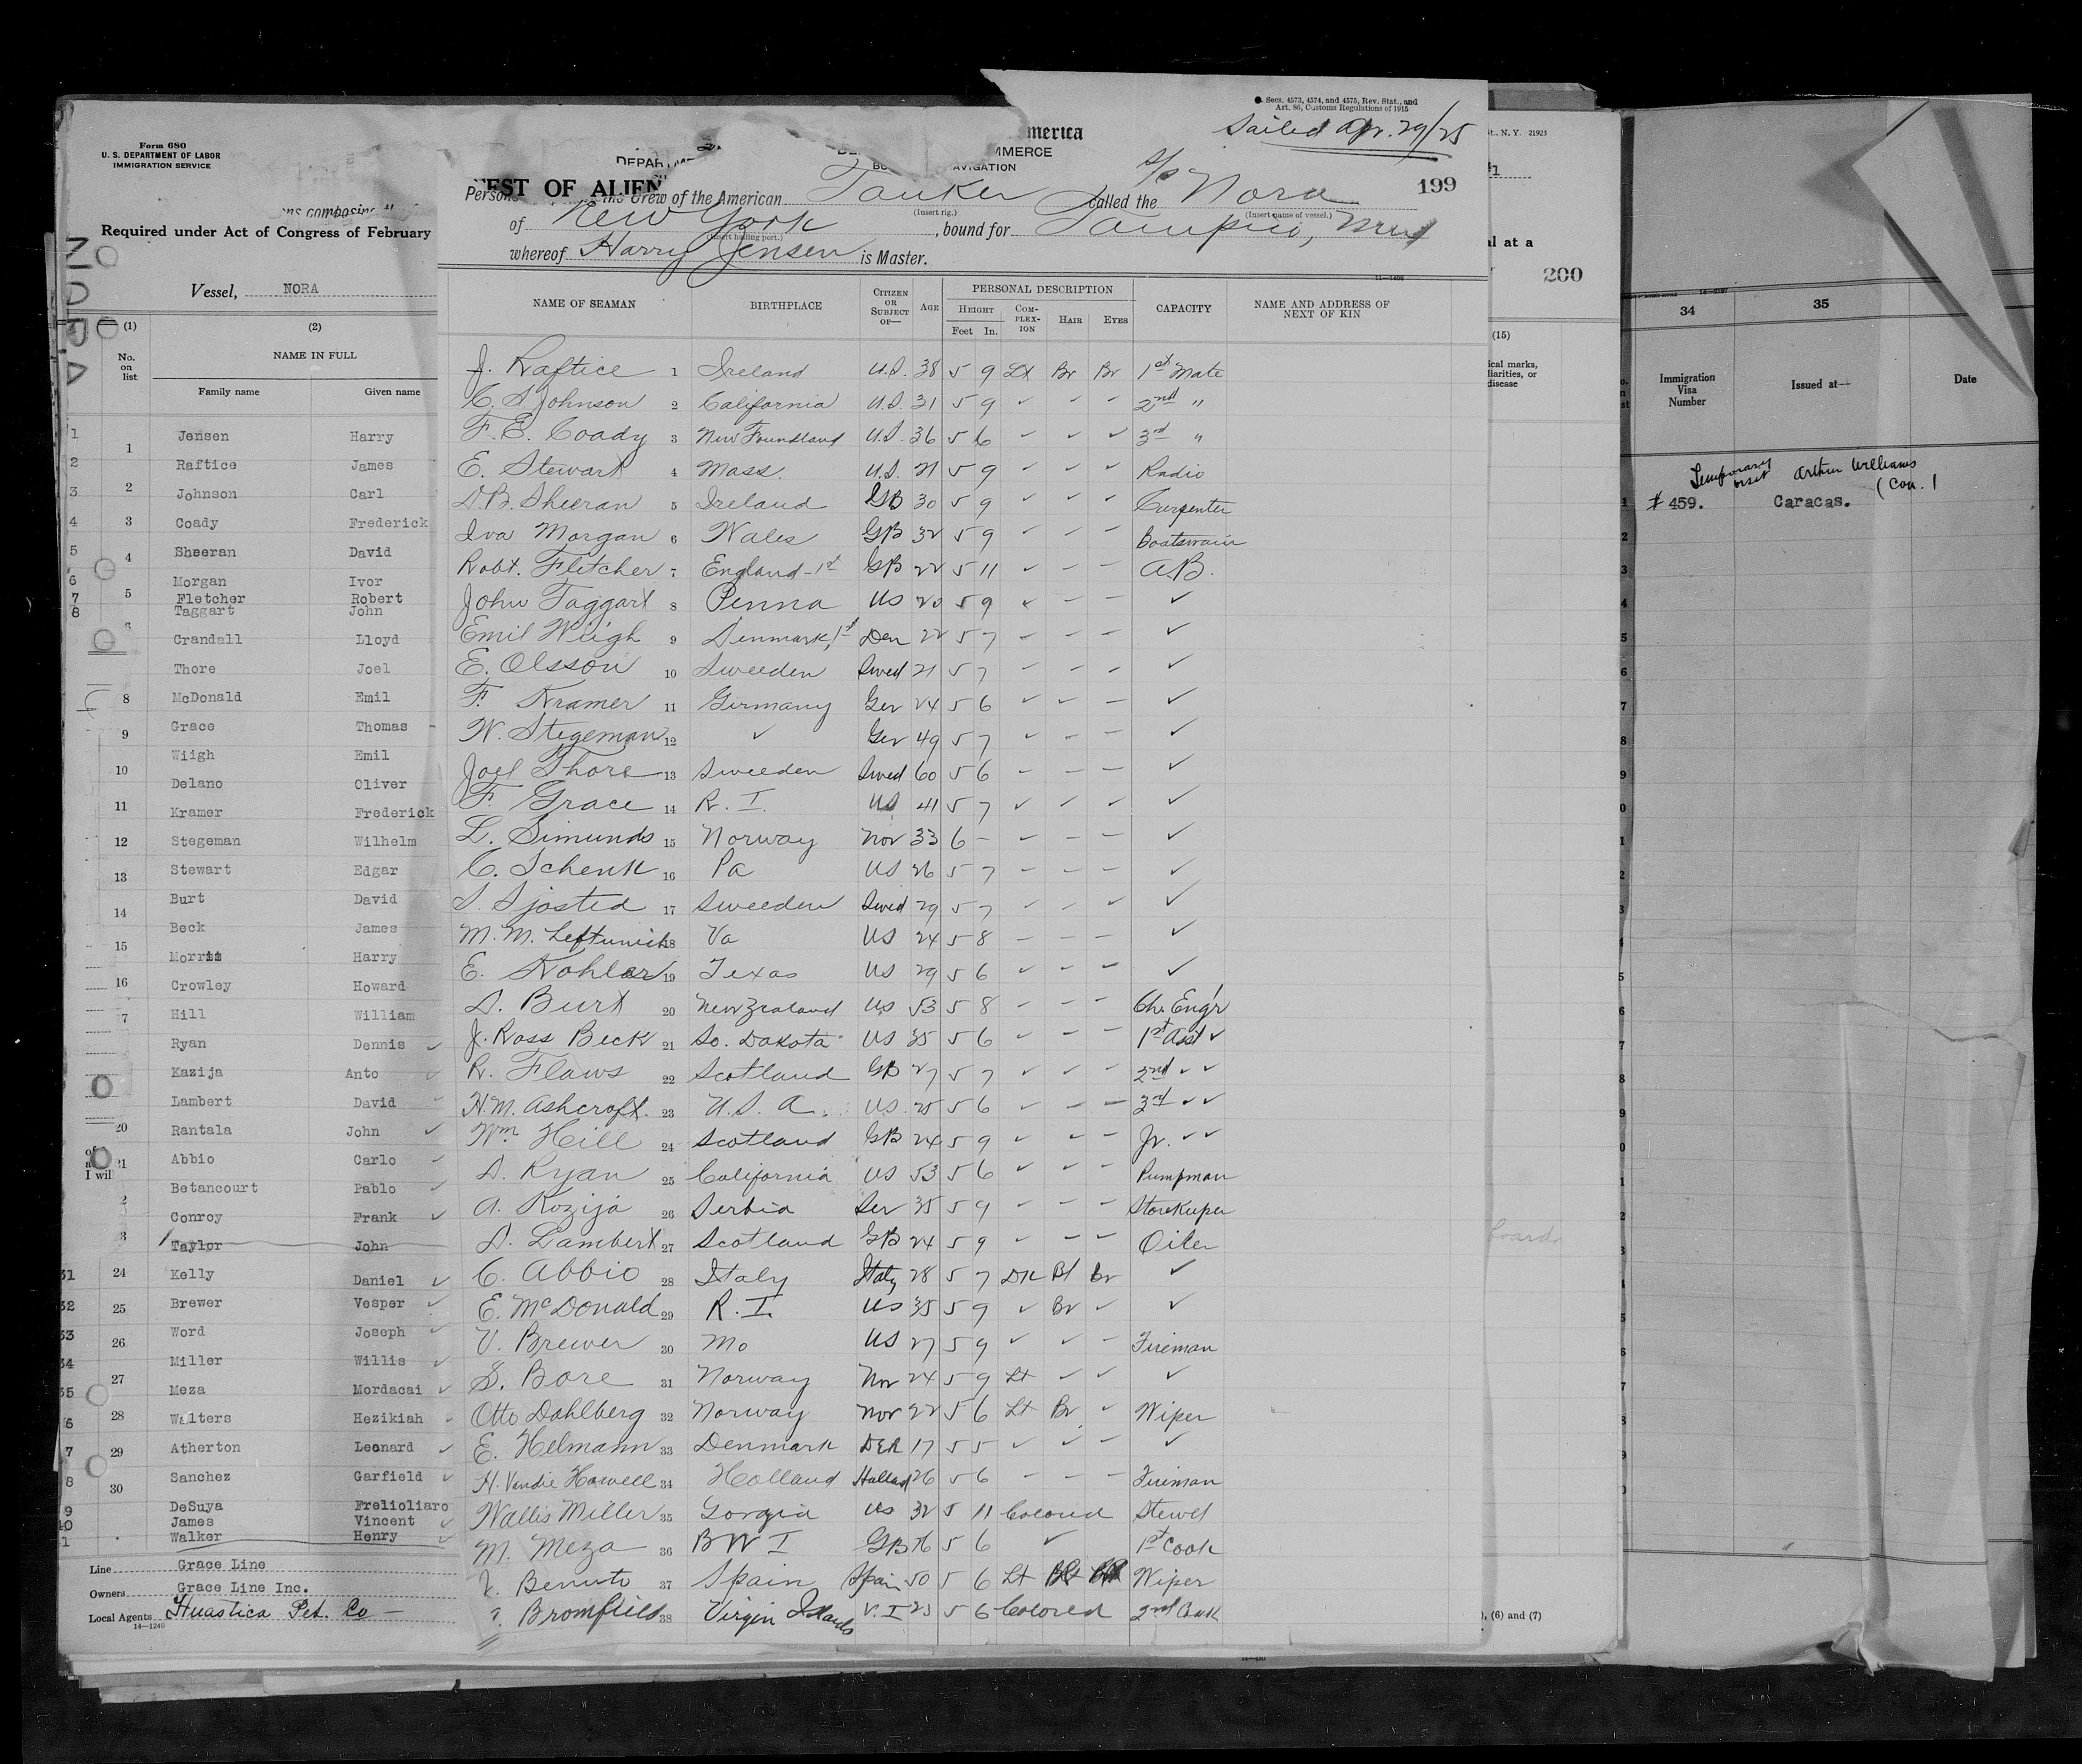 Form 680
U. S. DEPARTMENT OF LABOR
IMMIGRATION SERVICE
Required under Act of Congress of February
Vessel, NORA
NORA
(1) (2)
No. on list
NAME IN FULL
Family name Given name
1 Jensen Harry
2 Raftice James
3 Johnson Carl
4 Coady Frederick
5 Sheeran David
6 Morgan Ivor
7 Fletcher Robert
8 Taggart John
Crandall Lloyd
Thore Joel
McDonald Emil
Grace Thomas
Wiigh Emil
Delano Oliver
Kramer Frederick
Stegeman Wilhelm
Stewart Edgar
Burt David
Beck James
Morris Harry
Crowley Howard
Hill William
Ryan Dennis
Kazija Anto
Lambert David
Rantala John
Abbio Carlo
Betancourt Pablo
Conroy Frank
Taylor John
31 Kelly Daniel
32 Brewer Vesper
33 Word Joseph
34 Miller Willis
35 Meza Mordacai
6 Walters Hezikiah
7 Atherton Leonard
8 Sanchez Garfield
9 DeSuya Frelioliaro
10 James Vincent
1 Walker Henry
Line Grace Line
Owners Grace Line Inc.
Local Agents Huastica Pet. Co
14—1240
Secs. 4573, 4574, and 4575, Rev. Stat., and
Art. 86, Customs Regulations of 1915
Sailed Apr. 29/25
merica
MMERCE
AVIGATION
OF ALIEN
199
Crew of the American Tanker called the S/S Nora
(Insert rig.) (Insert name of vessel.)
of New York, bound for Tampico, Mex
(Insert hailing port.)
whereof Harry Jensen is Master.
NAME OF SEAMAN BIRTHPLACE CITIZEN OR SUBJECT OF— AGE PERSONAL DESCRIPTION CAPACITY NAME AND ADDRESS OF NEXT OF KIN
HEIGHT COMPLEXION HAIR EYES
Feet In.
J. Raftice 1 Ireland U.S. 38 5 9 Lt Br Br 1st Mate
C. S. Johnson 2 California U.S. 31 5 9 ✓ ✓ ✓ 2nd "
F. E. Coady 3 New Foundland U.S. 36 5 6 ✓ ✓ ✓ 3rd "
E. Stewart 4 Mass. U.S. 21 5 9 ✓ ✓ ✓ Radio
D.B. Sheeran 5 Ireland GB 30 5 9 ✓ ✓ ✓ Carpenter
Iva Morgan 6 Wales GB 32 5 9 ✓ – – Boatswain
Robt. Fletcher 7 England-1st GB 22 5 11 ✓ – – A.B.
John Taggart 8 Penna US 20 5 9 ✓ – – ✓
Emil Wiigh 9 Denmark, 1st Den 22 5 7 – – – ✓
E. Olsson 10 Sweeden Swed 21 5 7 – – – ✓
F. Kramer 11 Germany Ger 24 5 6 ✓ – – ✓
W. Stegeman 12 ✓ Ger 49 5 7 ✓ – – ✓
Joel Thore 13 Sweeden Swed 60 5 6 – – – ✓
F. Grace 14 R. I. US 41 5 7 ✓ ✓ ✓ ✓
L. Simunds 15 Norway Nor 33 6 – – – – ✓
C. Schenk 16 Pa US 26 5 7 – – – ✓
S. Sjosted 17 Sweeden Swed 29 5 7 ✓ ✓ ✓ ✓
M. M. Leftunich 18 Va US 24 5 8 – – – ✓
E. Kohler 19 Texas US 29 5 6 ✓ ✓ – ✓
D. Burt 20 New Zealand US 53 5 8 – – – Ch. Eng'r
J. Ross Beck 21 So. Dakota US 35 5 6 ✓ – – 1st Asst ✓
R. Flaws 22 Scotland GB 27 5 7 ✓ ✓ – 2nd ✓ ✓
H.M. Ashcroft. 23 U.S.A. US. 25 5 6 ✓ – – 3rd ✓ ✓
Wm Hill 24 Scotland GB 24 5 9 ✓ – – Jr. ✓ ✓
D. Ryan 25 California US 53 5 6 ✓ – – Pumpman
A. Kozija 26 Serbia Ser 35 5 9 – – – Storekeper
D. Lambert 27 Scotland GB 24 5 9 ✓ – – Oiler
C. Abbio 28 Italy Italy 28 5 7 Dk Bl Br ✓
E. McDonald 29 R. I. US 35 5 9 ✓ Br ✓ ✓
V. Brewer 30 Mo US 27 5 9 ✓ ✓ – Fireman
S. Bore 31 Norway Nor 24 5 9 Lt ✓ ✓ ✓
Otto Dahlberg 32 Norway Nor 22 5 6 Lt Br ✓ Wiper
E. Helmann 33 Denmark DEN 17 5 5 ✓ ✓ – ✓
H. Vandie Howell 34 Holland Holland 26 5 6 – – – Fireman
Wallis Miller 35 Gorgia US 32 5 11 Colored Stewd
M. Meza 36 B W I GB 26 5 6 ✓ 1st Cook
Benuto 37 Spain Spain 50 5 6 Lt Wiper
Bromfield 38 Virgin Islands V. I 23 5 6 Colored 2nd Cook
St., N. Y. 21923
al at a
200
(15)
ical marks,
liarities, or
disease
board
, (6) and (7)
34 35
Immigration Visa Number Issued at— Date
Temporary visit Arthur Williams
(Con.
1 # 459. Caracas.